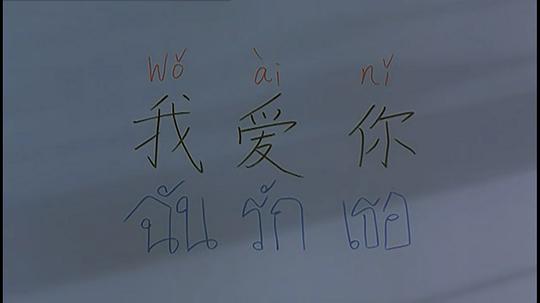 wǒ ài nǐ
我 爱 你
ฉัน รัก เธอ